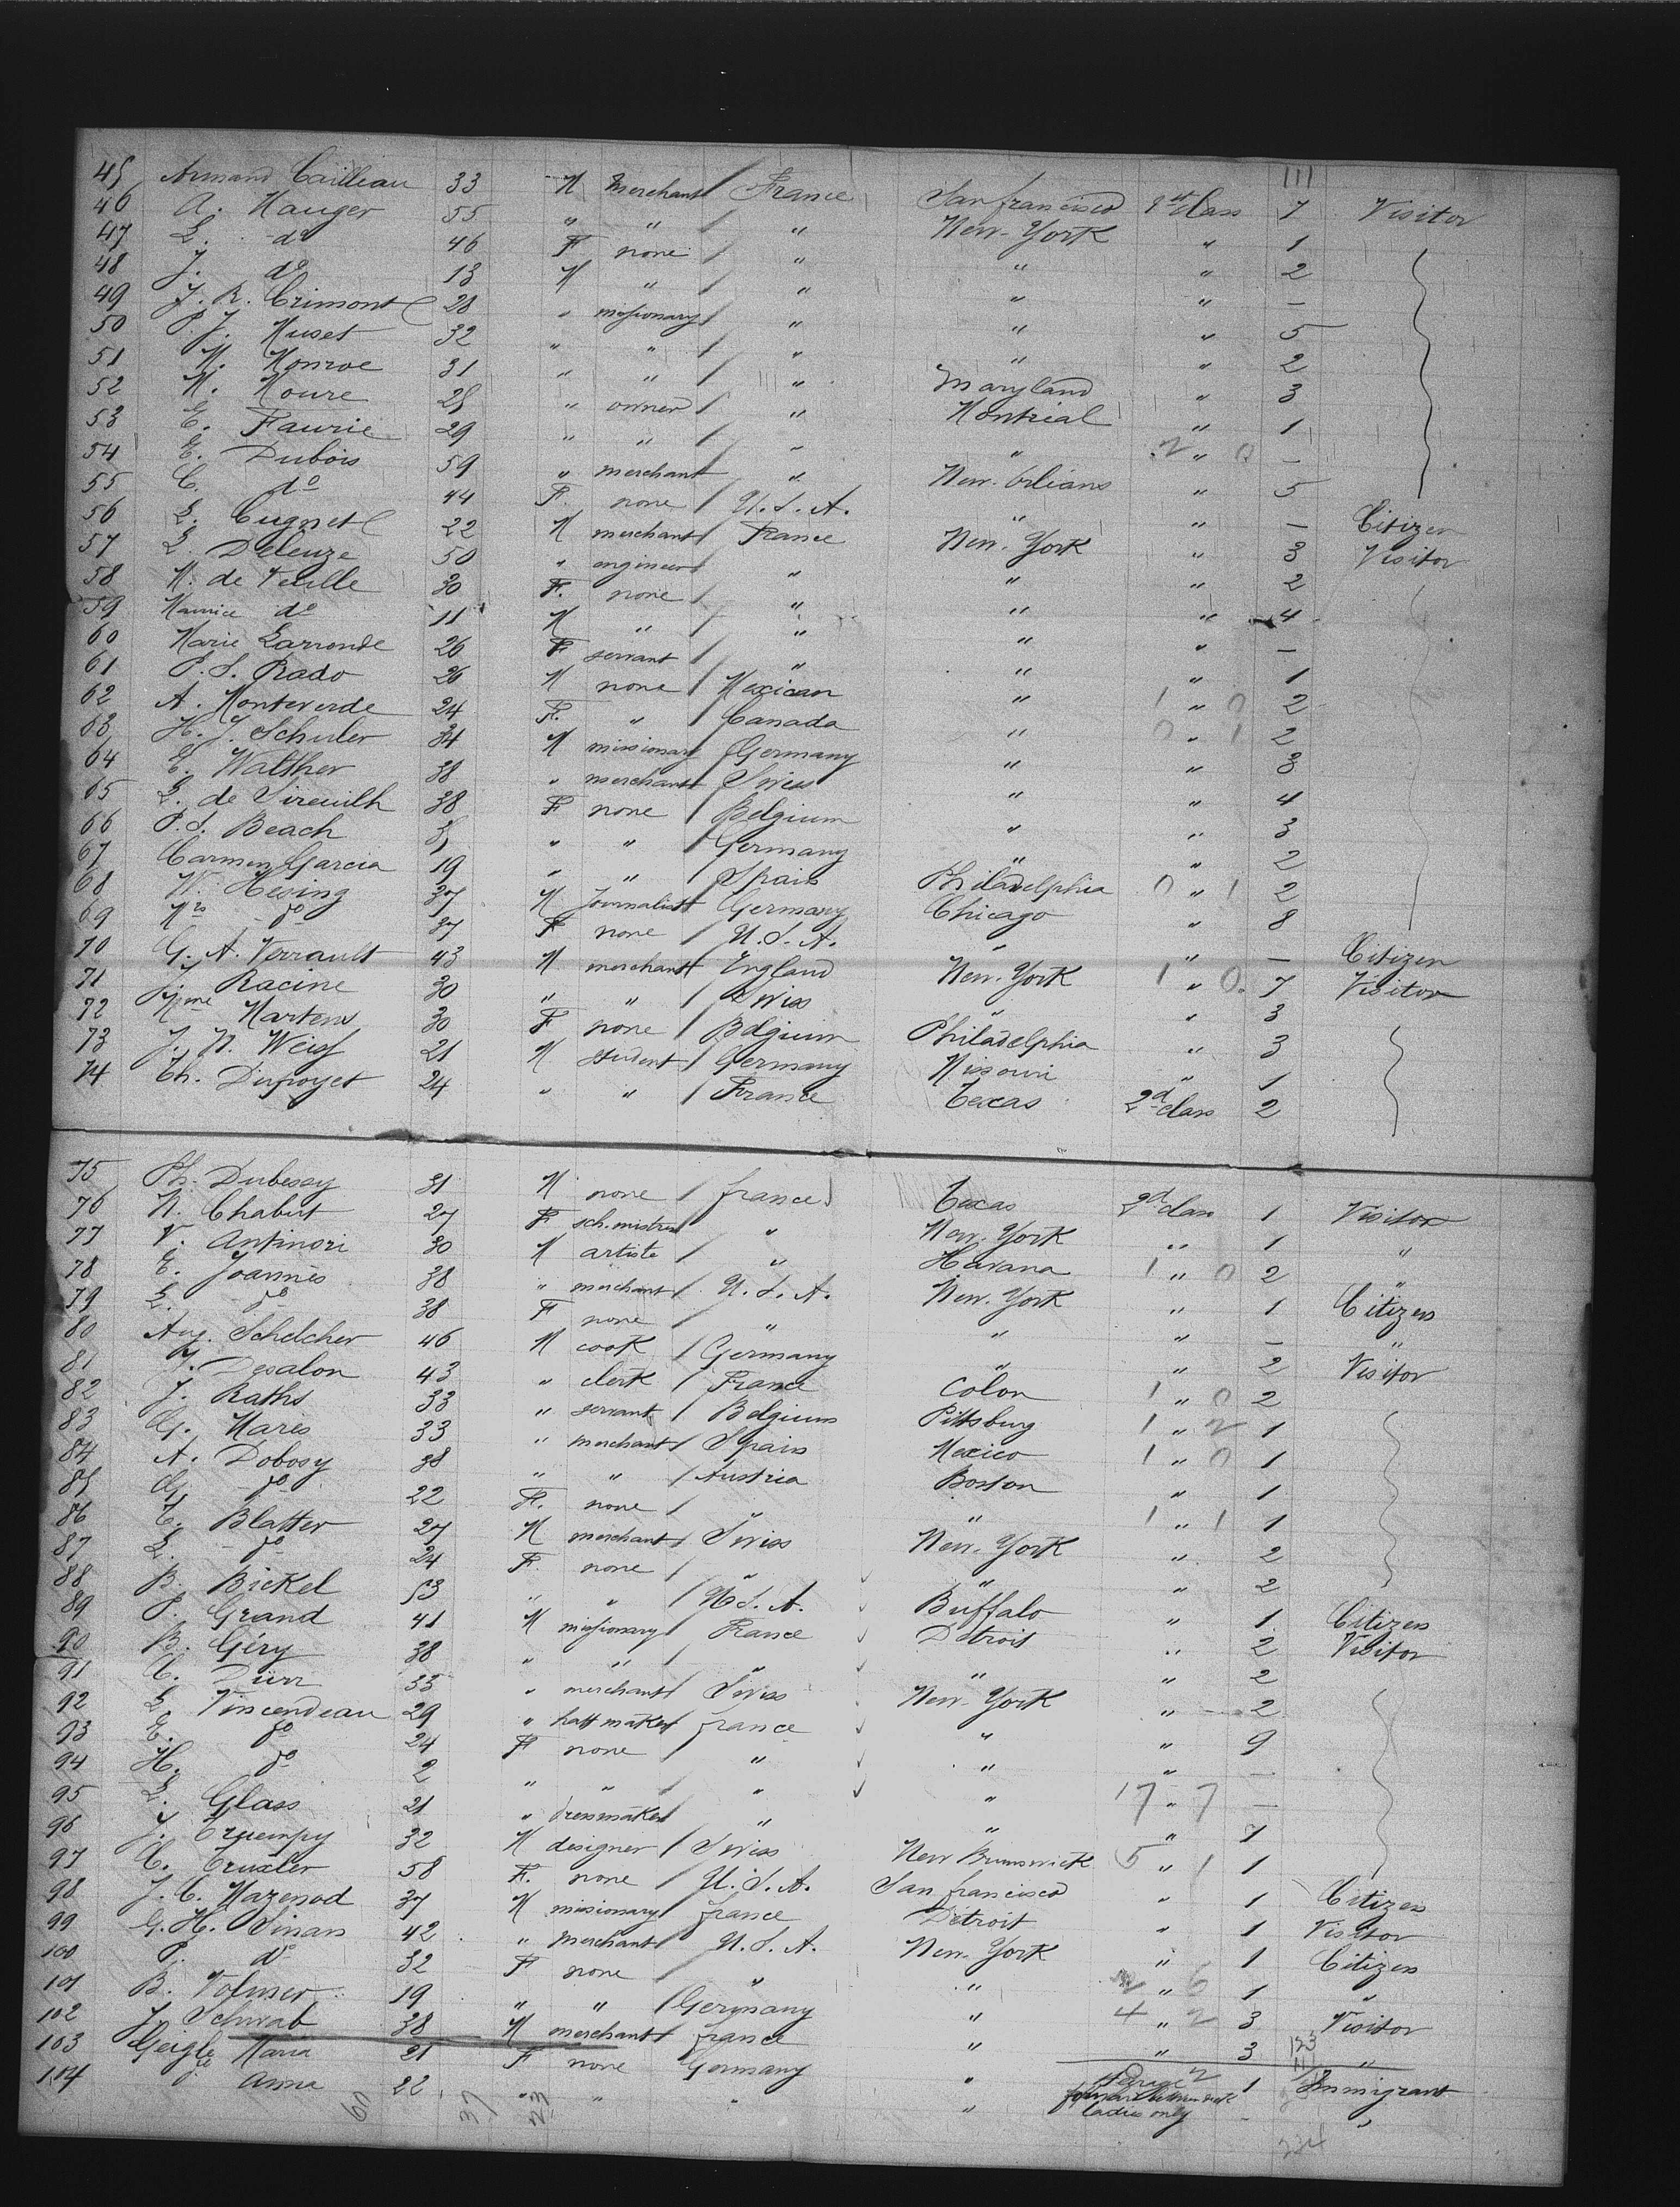 111
45 Armand Cailleau 33 M Merchant / France San francisco 1st Class 7 Visitor
46 A. Mauger 55 " " / " New-York " 1
47 L. do 46 F none / " " " 2
48 J. do 13 M " / " " " —
49 J. R. Crimont 28 " missionary / " " " 5
50 P. J. Muset 32 " " / " " " 2
51 M. Monroe 31 " " / " Maryland " 3
52 M. Moure 28 " owner / " Montreal " 1
53 E. Faurie 29 " " / " " 2 " 0 —
54 E. Dubois 59 " merchant " New. Orlians " 5
55 C. do 44 F. none / U.S.A. " " — Citizen
56 L. Cugnet 22 M merchant / France New. York " 3 Visitor
57 L. Deleuze 50 " engineer / " " " 2
58 M. de Veulle 30 F. none / " " " 4
59 Maurice do 11 M " / " " " —
60 Marie Larronde 26 F servant / " " " 1
61 P. S. Prado 26 M none / Mexican " 1 " 0 2
62 A. Monteverde 24 F. " / Canada " 0 " 1 2
63 H. J. Schuler 34 M missionary / Germany " " 3
64 E. Walther 38 " merchant / Swiss " " 4
65 L. de Sireuilh 38 F none / Belgium " " 3
66 P. S. Beach " " / Germany " " 2
67 Carmen Garcia 19 " " / Spain Philadelphia 0 " 1 2
68 W. Hesing 37 M Journalist / Germany Chicago " 8
69 Mrs do 37 F none / U.S.A. " " — Citizen
70 G. A. Verrault 43 M merchant / England New. York 1 " 0. 7 Visitor
71 J. Racine 30 " " / Swiss " " 3
72 Mme Martens 30 F none / Belgium Philadelphia " 3
73 J. N. Weiss 21 M student / Germany Missouri " 1
74 Th. Dufoyet 24 " " / France Texas 2d class 2
75 Ph. Dubessy 31 M none / france Texas 2d class 1 Visitor
76 N. Chabut 27 F sch. mistress " New. York " 1 "
77 V. Antinori 30 M artiste / " Havana 1 " 0 2 "
78 E. Joannès 38 " merchant / U.S.A. New. York " 1 Citizen
79 L. do 38 F none / " " " — "
80 Aug. Schelcher 46 M cook / Germany " " 2 Visitor
81 J. Desalon 43 " clerk / France Colon 1 " 0 2
82 J. Raths 33 " servant / Belgium Pittsburg 1 " 2 1
83 G. Mares 33 " merchant / Spain Mexico 1 " 0 1
84 A. Dobosy 38 " " / Austria Boston " 1
85 G. do 22 F. none / " " 1 " 1 1
86 E. Blatter 27 M merchant / Swiss New. York " 2
87 L. do 24 F. none / " " " 2
88 B. Bickel 53 " " / U.S.A. Buffalo " 1 Citizen
89 P. Grand 41 M missionary / France Detroit " 2 Visitor
90 B. Géry 38 " " / " " " 2
91 C. Dürr 33 " merchant / Swiss New-York " 2
92 L. Vincendeau 29 " hatt maker / france " " 9
93 E. do 24 F none / " " " —
94 H. do 2 " " / " " 17 " 7 —
95 L. Glass 21 " dressmaker / " " " 1
96 J. Truempy 32 M designer / Swiss New Brunswick 5 " 1 1
97 C. Truxler 58 F. none / U.S.A. San francisco " 1 Citizen
98 J. C. Mazenod 37 M missionary / france Detroit " 1 Visitor
99 G. H. Sinan 42 " Merchant / U.S.A. New-York " 1 Citizen
100 P. do 32 F none / " " 2 " 6 1 "
101 B. Volmer 19 " " / Germany " 4 " 2 3 Visitor
102 J. Schwab 38 M merchant / france " " 3 "
103 Geigle Maria 21 F none Germany " 1 Immigrant
104 do Anna 22 " " " " ladies only — "
60 37 23
234